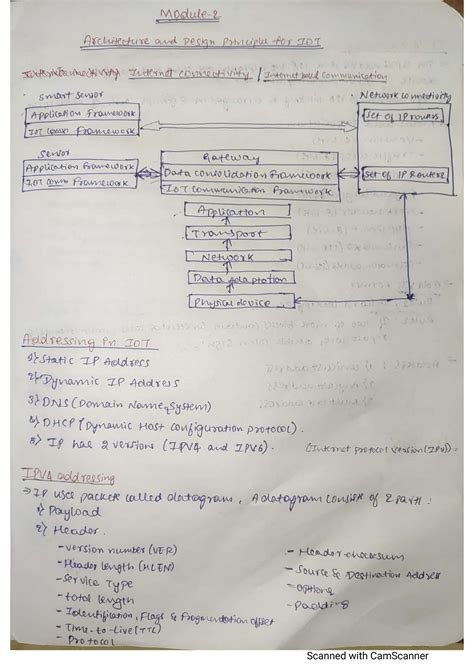 Module-2
Architecture and Design Principle for IOT
Internet connectivity / Internet based communication
Smart Sensor
Network Connectivity
Application Framework
IOT Comm Framework
Set of IP routers
Sensor
Gateway
Application Framework
Data Consolidation Framework
Set of IP Routers
IOT Comm Framework
IOT Communication Framework
Application
Transport
Network
Data Adaptation
Physical device
Addressing in IOT
1) Static IP Address
2) Dynamic IP Address
3) DNS (Domain Name System)
4) DHCP (Dynamic Host Configuration Protocol).
5) IP has 2 versions (IPV4 and IPV6).
(Internet protocol version (IPV)).
IPV4 addressing
⇒ IP uses packet called datagram, A datagram consists of 2 part:
1) Payload
2) Header.
- version number (VER)
- Header length (HLEN)
- Service Type
- total length
- Identification, Flags & Fragmentation offset
- Time-to-Live (TTL)
- Protocol
- Header checksum
- Source & Destination Address
- Options
Scanned with CamScanner